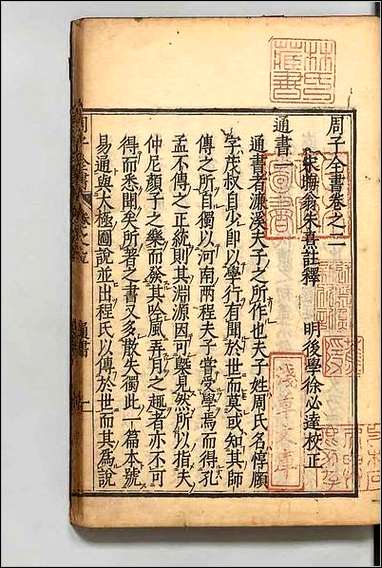 周子全書卷之二
宋晦翁朱熹註釋　明後學徐必達校正
通書一
通書者濂溪夫子之所作也夫子姓周氏名惇頤
字茂叔自少即以學行有聞於世而莫或知其師
傳之所自獨以河南兩程夫子嘗受學焉而得孔
孟不傳之正統則其淵源因可槩見然所以指夫
仲尼顏子之樂而發其吟風弄月之趣者亦不可
得而悉聞矣所著之書又多散失獨此一篇本號
易通與太極圖說並出程氏以傳於世而其為說
周子全書
通書
林氏
藏書
圖書
淺草文庫